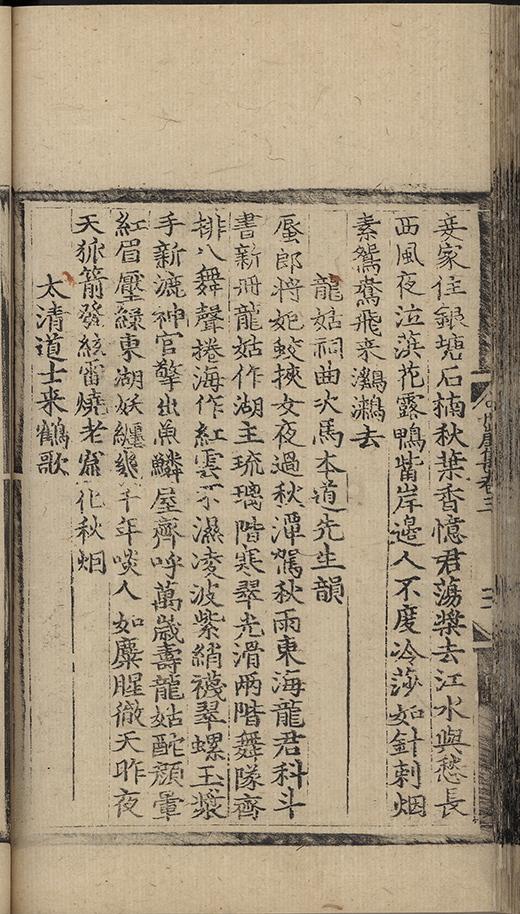 妾家住銀塘石楠秋葉香憶君蕩槳去江水與愁長
西風夜泣蘋花露鴨觜岸邊人不度冷莎如針刺烟
素鴛鴦飛來鸂鶒去
龍姑祠曲次馬本道先生韻
蜃郎將妃蛟挾女夜過秋潭駕秋雨東海龍君科斗
書新冊龍姑作湖主琉璃階寒翠光滑兩階舞隊齊
排八舞聲捲海作紅雲不濕凌波紫綃襪翠螺玉漿
手新漉神官擎出魚鱗屋齊呼萬歳壽龍姑酡顏暈
紅眉壓綠東湖妖纏幾千年啖人如麋腥徹天昨夜
天狐箭發絃雷燒老窟化秋烟
太清道士来鶴歌
卷二
三